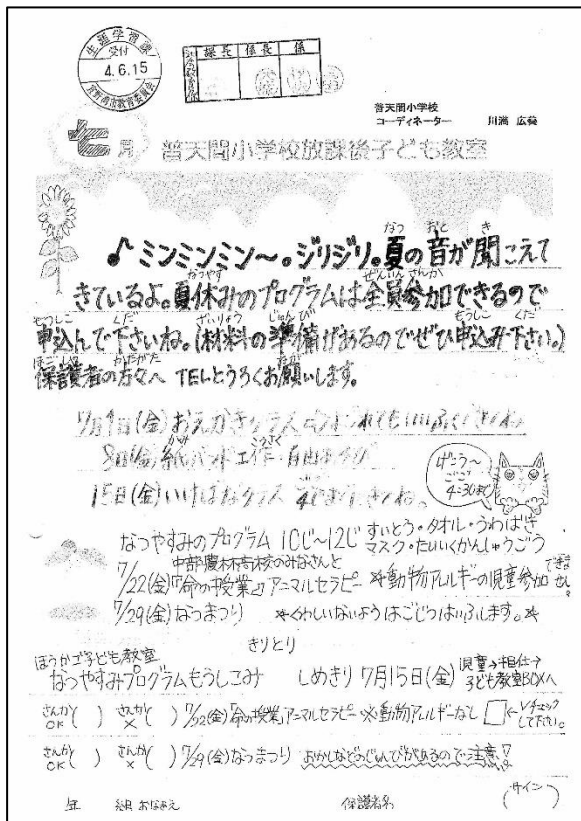 生涯学習課
受付
4.6.15
宜野湾市教育委員会
課長 係長 係
普天間小学校
コーディネーター 川満 広美
七月 普天間小学校放課後子ども教室
♪ミンミンミン～。ジリジリ。夏の音が聞こえて
きているよ。夏休みのプログラムは全員参加できるので
申込んで下さいね。(材料の準備があるのでぜひ申込み下さい。)
保護者の方々へ TELとうろくお願いします。
(金)おえかきクラス
8日(金)紙バンド工作・自由
15日(金)いけばなクラス
げこう～
4:30まで
なつやすみのプログラム 10じ～12じ すいとう・タオル・うわばき
マスク・たいいくかんしゅうごう
中部農林高校のみなさんと
7/22(金)「命の授業」アニマルセラピー ※動物アレルギーの児童参加できません。
7/29(金)なつまつり *くわしいないようはごじつはいふします。*
きりとり
ほうかご子ども教室
なつやすみプログラムもうしこみ しめきり 7月15日(金) 児童→担任→子ども教室BOXへ
さんかOK( ) さんか×( ) 7/22(金)「命の授業」アニマルセラピー ※動物アレルギーなし □←Vチェックして下さい。
さんかOK( ) さんか×( ) 7/29(金)なつまつり おかしなどのじゅんびがあるので注意!
年 組 おなまえ 保護者名 (サイン)